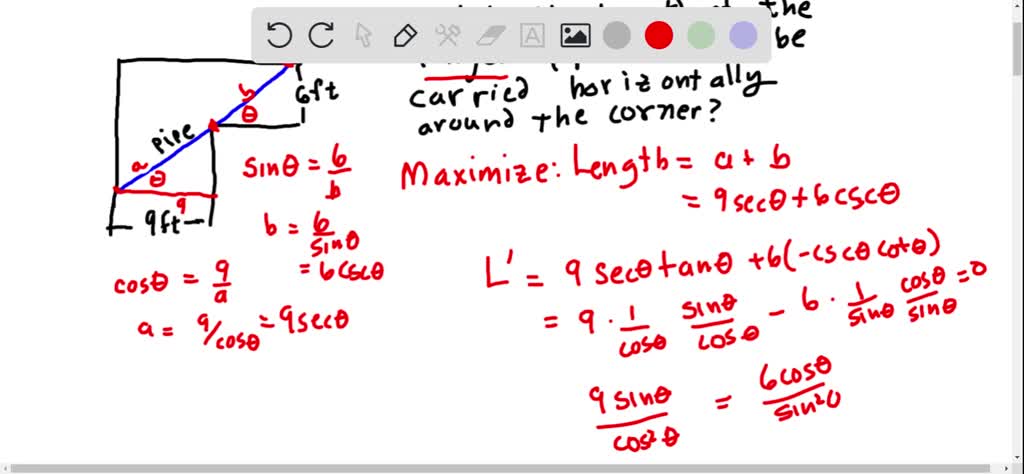 the
be
carried horizontally
around the corner?
6ft
b
θ
pipe
a
θ
9
9ft
sinθ = 6/b
b = 6/sinθ
= 6cscθ
cosθ = 9/a
a = 9/cosθ = 9secθ
Maximize: Length = a + b
= 9secθ + 6cscθ
L' = 9secθtanθ + 6(-cscθcotθ)
= 9 · 1/cosθ sinθ/cosθ - 6 · 1/sinθ cosθ/sinθ = 0
9sinθ/cos²θ = 6cosθ/sin²θ
A